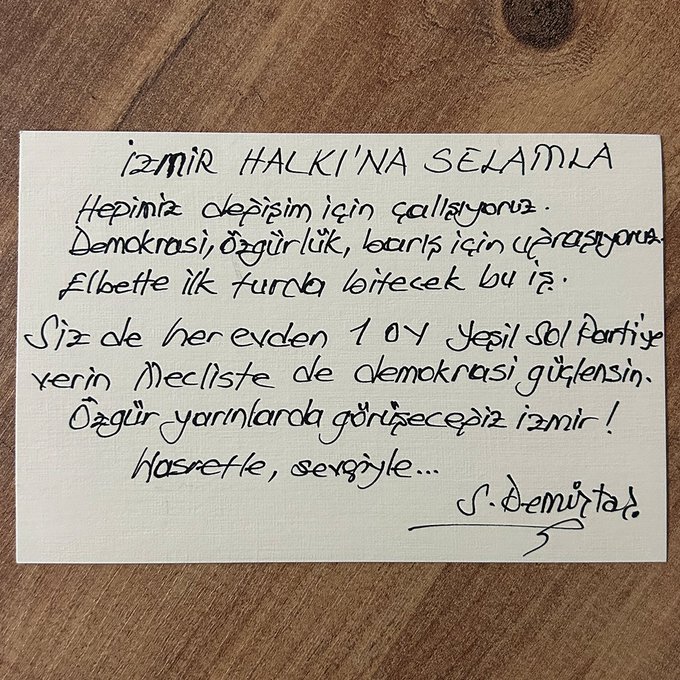 İZMİR HALKI'NA SELAMLA
Hepimiz değişim için çalışıyoruz.
Demokrasi, özgürlük, barış için uğraşıyoruz.
Elbette ilk turda bitecek bu iş.
Siz de her evden 1 OY Yeşil Sol Parti'ye
verin Mecliste de demokrasi güçlensin.
Özgür yarınlarda görüşeceğiz İzmir!
Hasretle, sevgiyle...
S. Demirtaş.